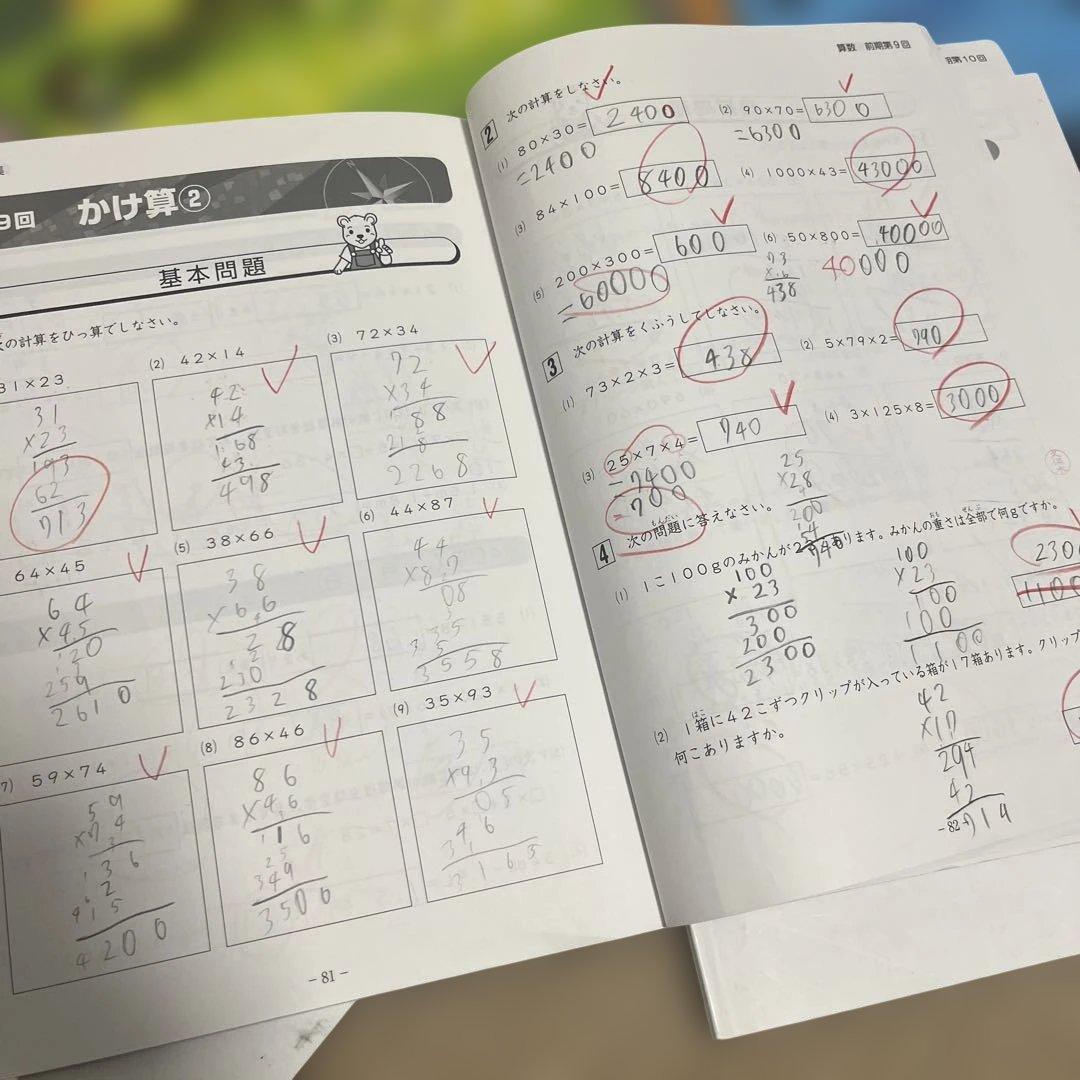 9回 かけ算②
基本問題
の計算をひっ算でしなさい。
31×23
31
×23
193
62
713
(2) 42×14
42
×14
168
43
498
(3) 72×34
72
×34
88
218
2268
64×45
64
×45
120
259
2610
(5) 38×66
38
×66
28
230
2328
(6) 44×87
44
×87
08
35
3558
7) 59×74
59
×74
136
2
415
4200
(8) 86×46
86
×46
116
349
3506
(9) 35×93
35
×93
05
3165
－81－
算数 前期第9回
第10回
2 次の計算をしなさい。
(1) 80×30= 2400
=2400
(2) 90×70= 6300
=6300
(3) 84×100= 8400
(4) 1000×43= 43000
(5) 200×300= 600
=60000
(6) 50×800= 40000
40000
73
×6
438
3 次の計算をくふうしてしなさい。
(1) 73×2×3= 438
(2) 5×79×2= 790
(3) 25×7×4= 740
=7400
=700
(4) 3×125×8= 3000
25
×28
200
54
740
4 次の問題に答えなさい。
(1) 1こ100gのみかんが23こあります。みかんの重さは全部で何gですか。
100
×23
300
200
2300
100
×23
100
100
1100
230
1100
(2) 1箱に42こずつクリップが入っている箱が17箱あります。クリップ
何こありますか。
42
×17
294
42
714
－82－